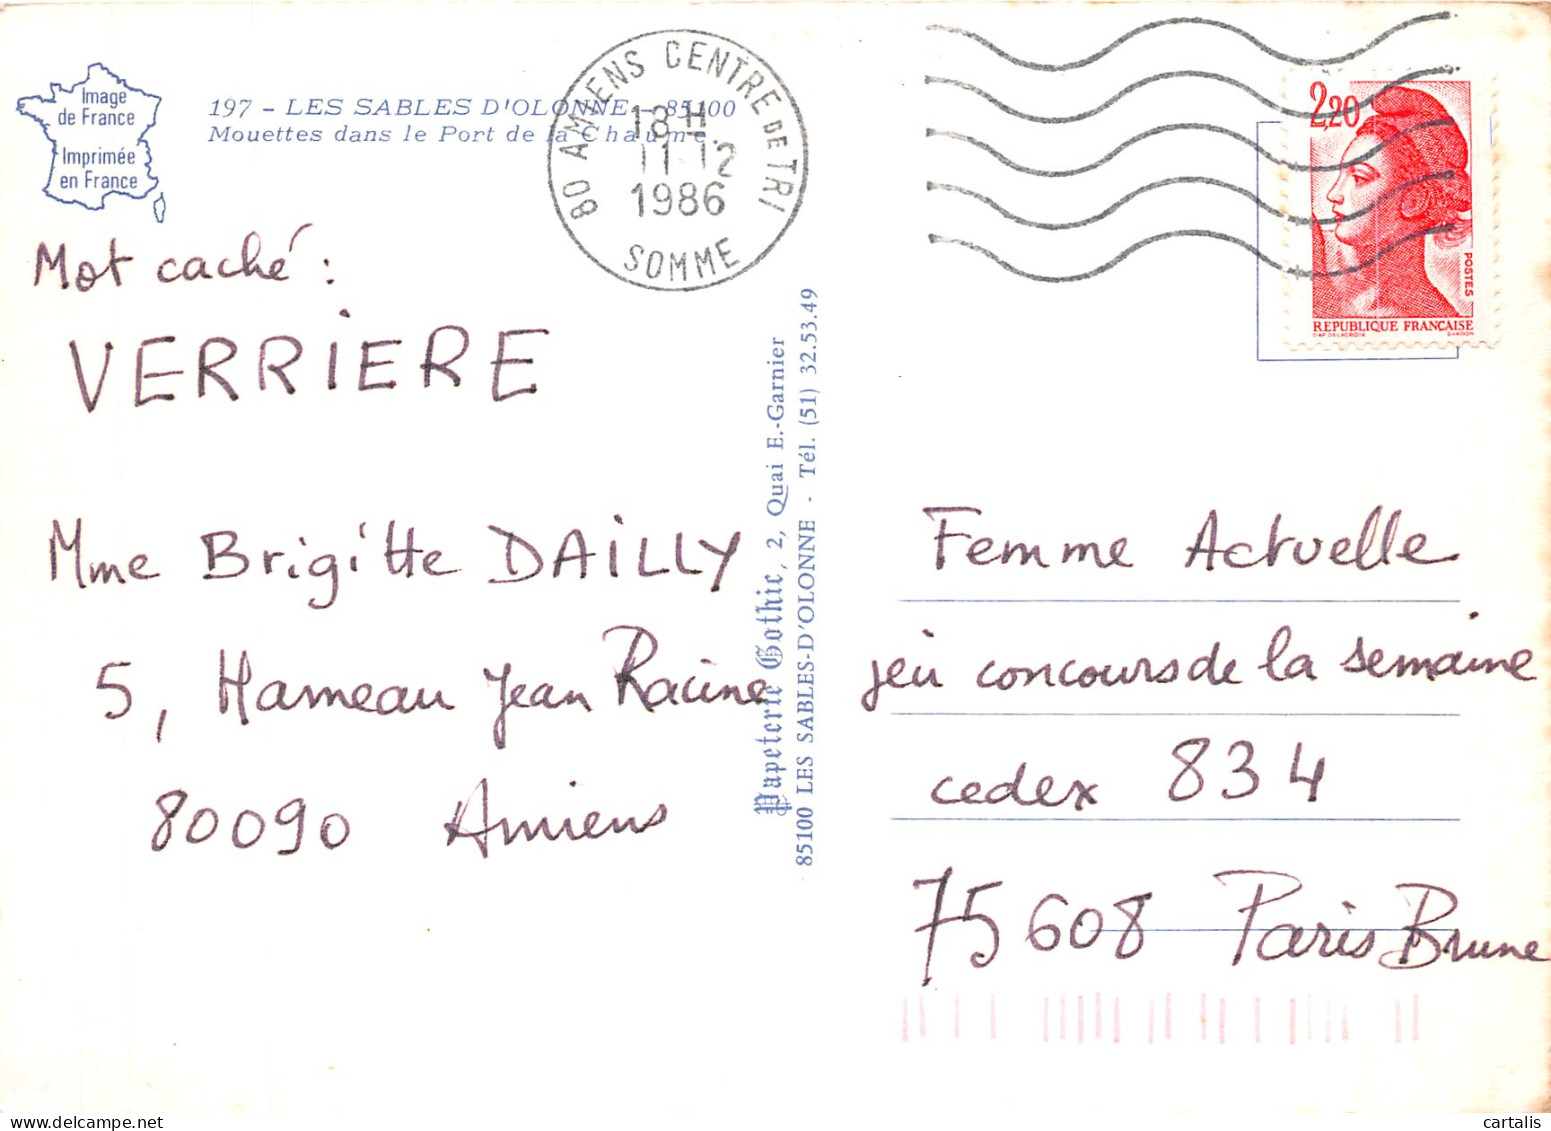 Image
de France
Imprimée
en France
197 - LES SABLES D'OLONNE - 85100
Mouettes dans le Port de la Chaume.
80 AMIENS CENTRE DE TRI
18 H
11 12
1986
SOMME
2,20
POSTES
REPUBLIQUE FRANÇAISE
D'AP. DELACROIX GANDON
Mot caché :
VERRIERE
Mme Brigitte DAILLY
5, Hameau Jean Racine
80090 Amiens
Papeterie Gothic, 2, Quai E.-Garnier
85100 LES SABLES-D'OLONNE - Tél. (51) 32.53.49
Femme Actuelle
jeu concours de la semaine
cedex 834
75608 Paris Brune
cartalis